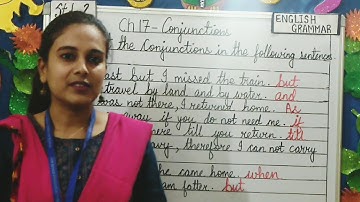 Std. 2
Ch 17 - Conjunctions
ENGLISH
GRAMMAR
the Conjunctions in the following sentences.
but I missed the train. but
travel by land and by water. and
was not there, I returned home. As
away if you do not need me. if
till you return. till
therefore I can not carry
he came home. when
am fatter. but